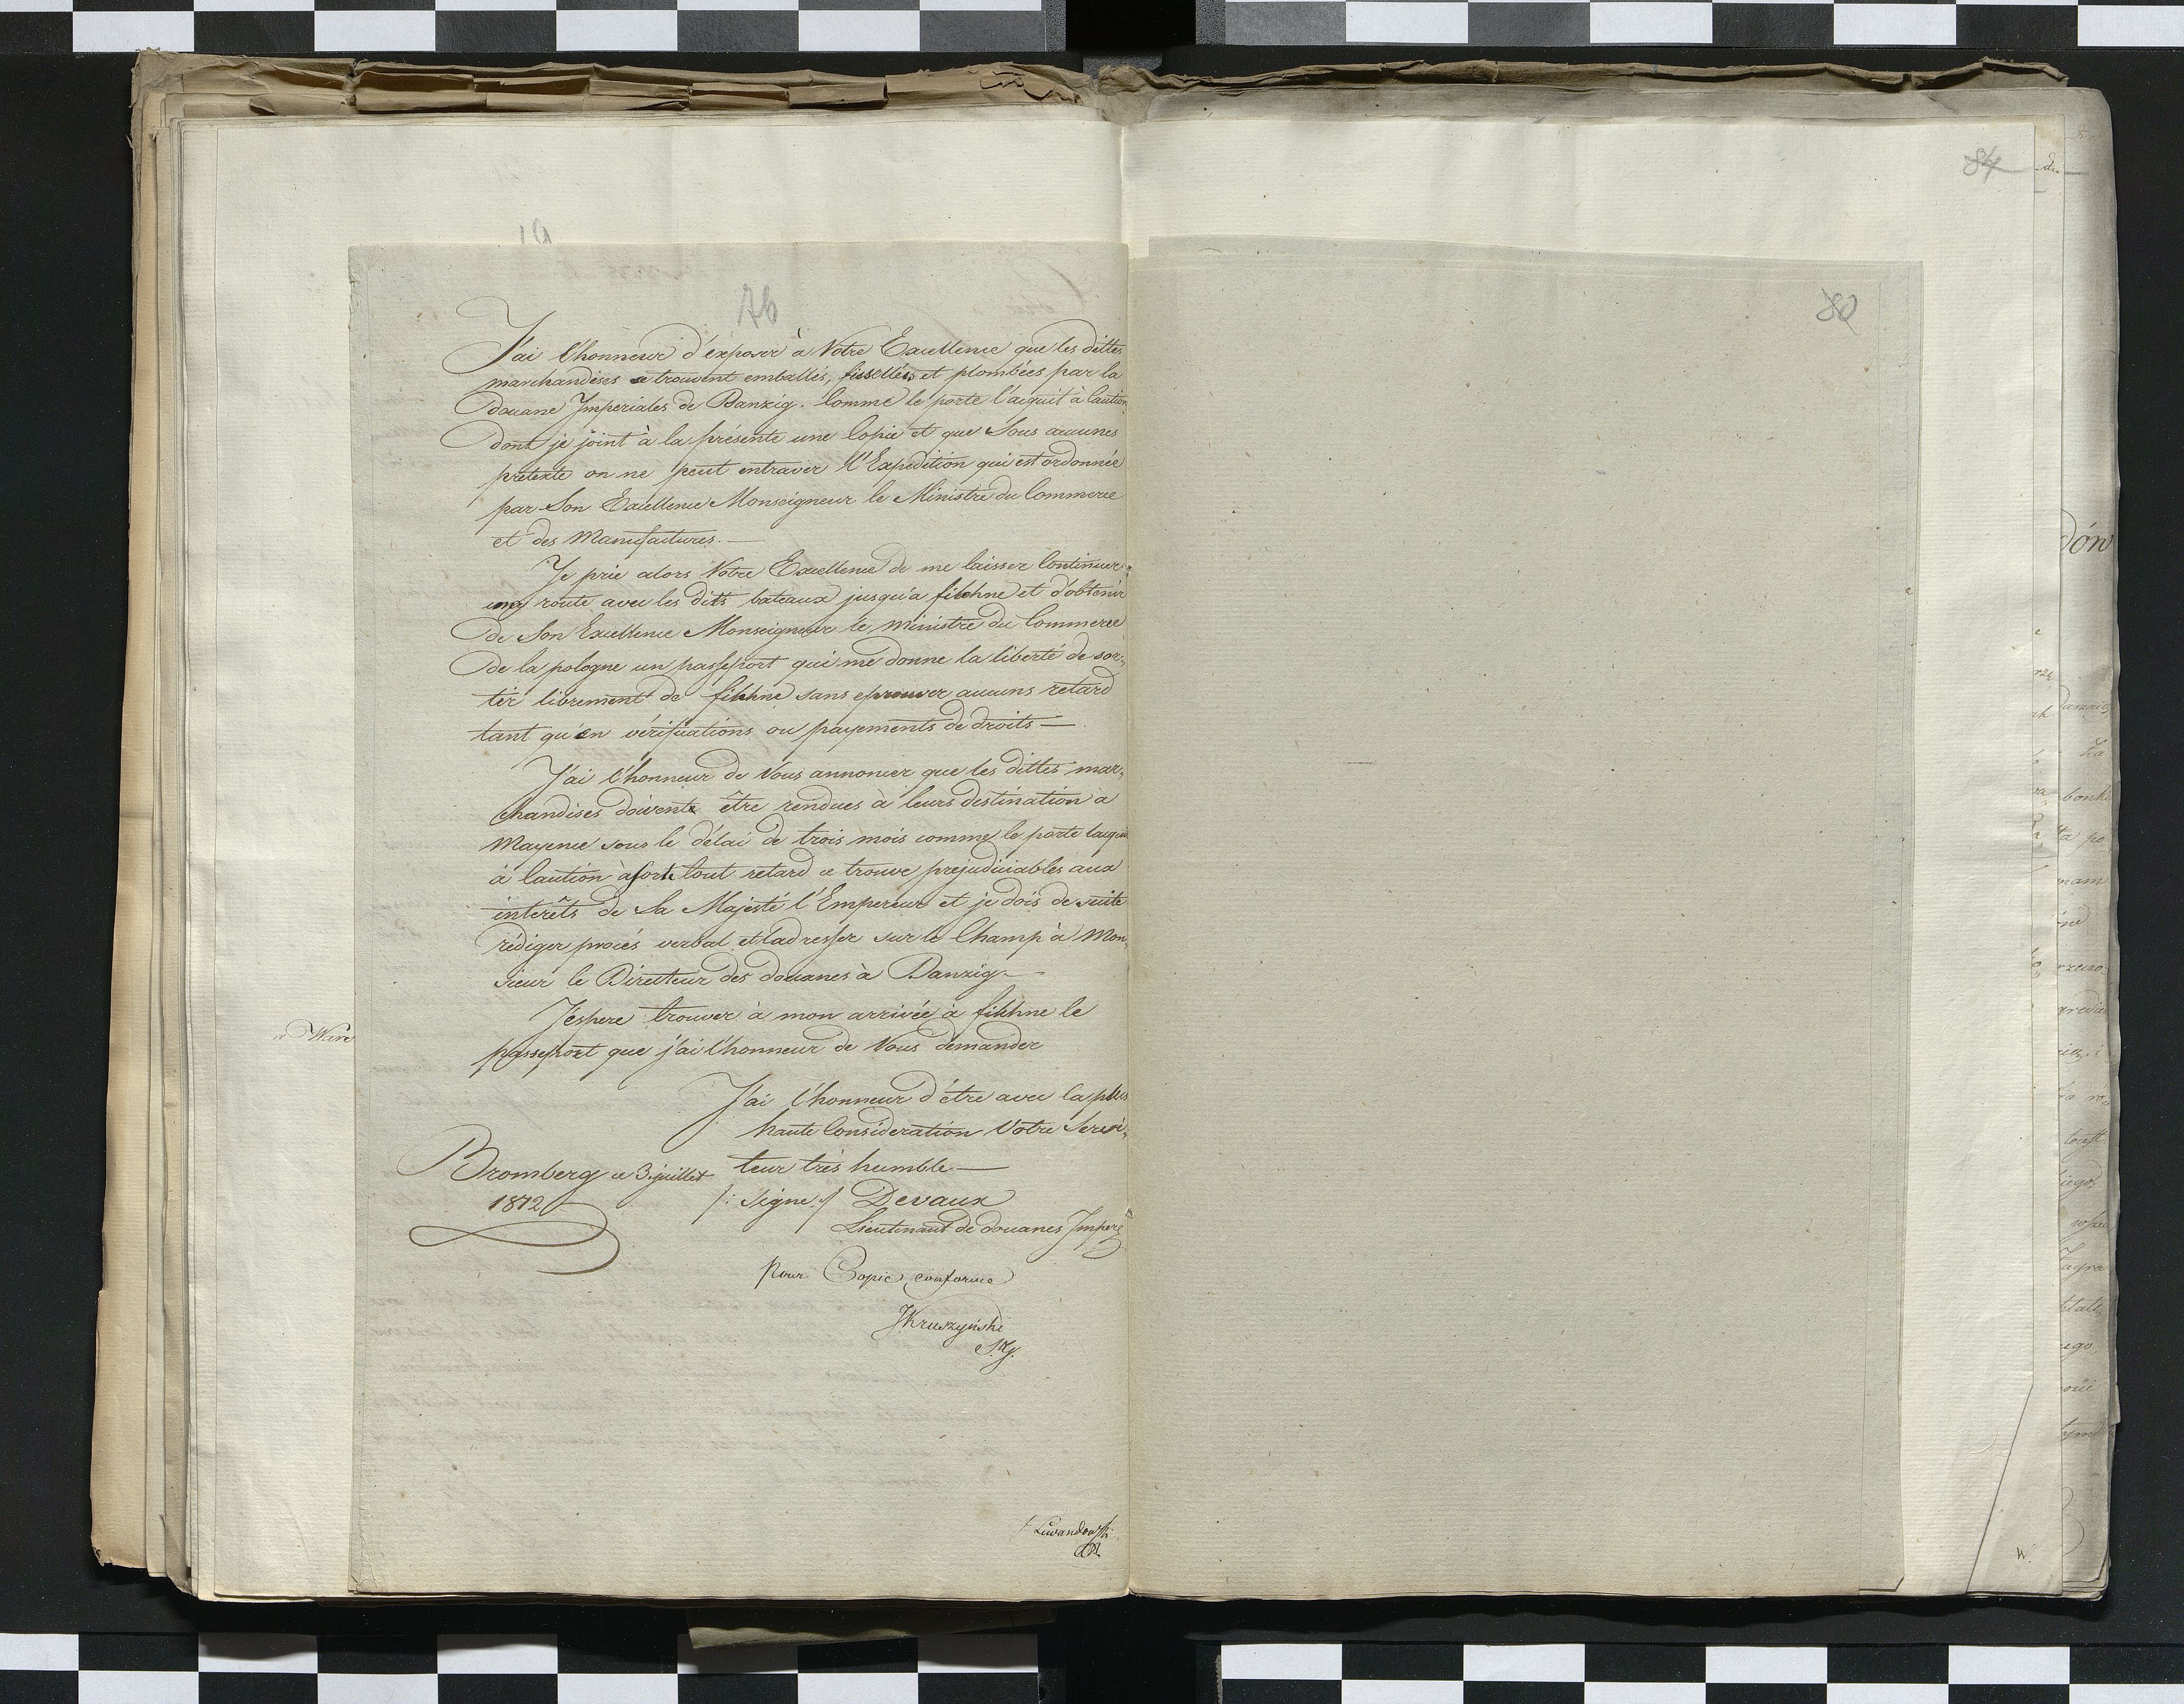 76
J'ai l'honneur d'exposer à Votre Excellence que les dittes
marchandises se trouvent emballés, fissellées et plombées par la
Douane Imperiales de Danzig. Comme le porte l'acquit à Caution
dont je joint à la présente une Copie et que Sous aucunes
prétexte on ne peut entraver l'Expedition qui est ordonnée
par Son Excellence Monseigneur le Ministre du Commerce
et des Manufactures. —
Je prie alors Votre Excellence de me laisser Continuer
my route avec les dits bateaux jusqu'a filehne et d'obtenir
de Son Excellence Monseigneur le Ministre du Commerce
de la pologne un passeport qui me donne la liberté de sor„
tir librement de filehne sans eprouver aucuns retard
tant qu'en vérifications ou payements de droits —
J'ai l'honneur de Vous annoncer que les dittes mar„
chandises doivent être rendues à leurs destination a
Mayence sous le délai de trois mois comme le porte lacquit
à Caution àsorte tout retard ce trouve prejudiciables aux
interêts de Sa Majesté l'Empereur et je dois de suite
rédiger procés verbal et ladresser sur le Champ à Mon„
sieur le Directeur des douanes à Danzig —
J'espere trouver à mon arrivée à filehne le
passeport que j'ai l'honneur de Vous demander
J'ai l'honneur d'être avec la plus
haute Consideration Votre Servi„
teur très humble —
Bromberg ce 3 juillet
1812
/: Signe :/ Devaux
Lieutenant de douanes Imper
Pour Copie conforme
JKruszyński
Lewandowski
80
84